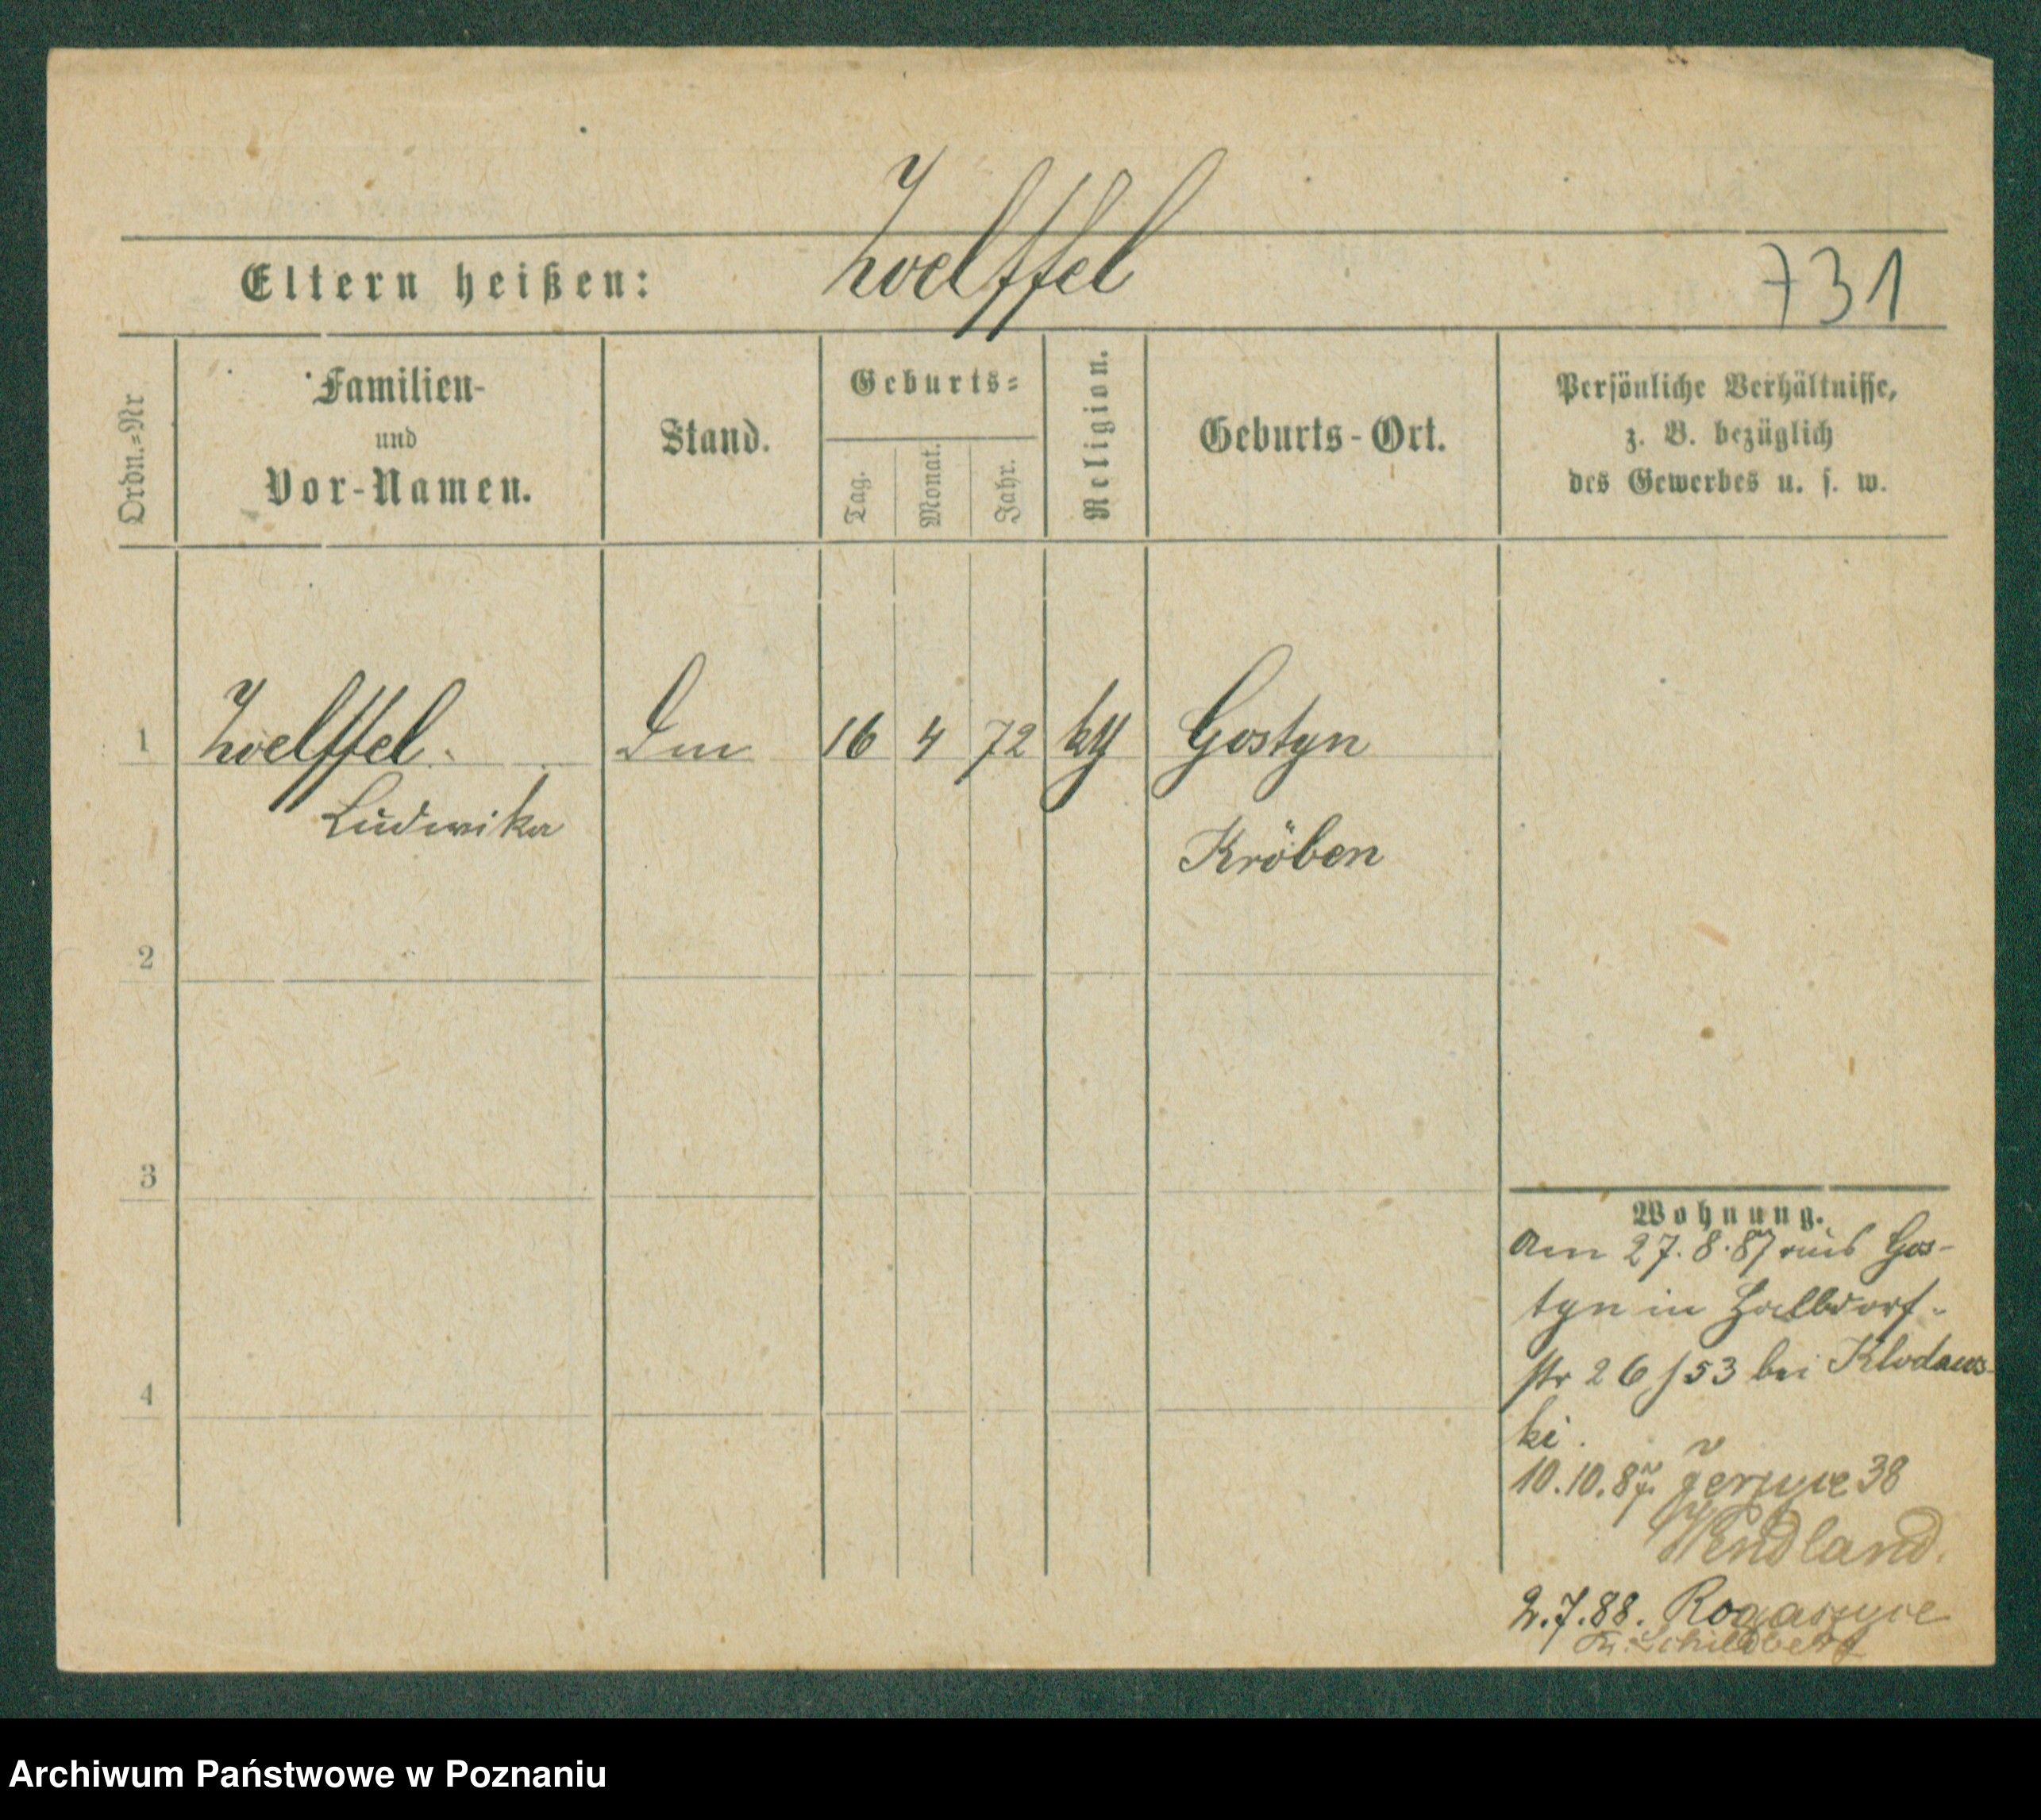 Eltern heißen: Zwelffel 731
Ordn.=Nr
Familien-
und
Vor-Namen.
Stand.
Geburts=
Tag.
Monat.
Jahr.
Religion.
Geburts-Ort.
Persönliche Verhältnisse,
z. B. bezüglich
des Gewerbes u. s. w.
1 Zwelffel Dm 16 4 72 Gostyn
Ludwika
Kröben
2
3
4
Wohnung.
Am 27.8.87 aus Gos-
tyn in Halbdorf-
str 26/53 bei Klodaws-
ki.
10.10.87. 38
Wendland.
2.7.88.
Kr. Schildberg
Archiwum Państwowe w Poznaniu